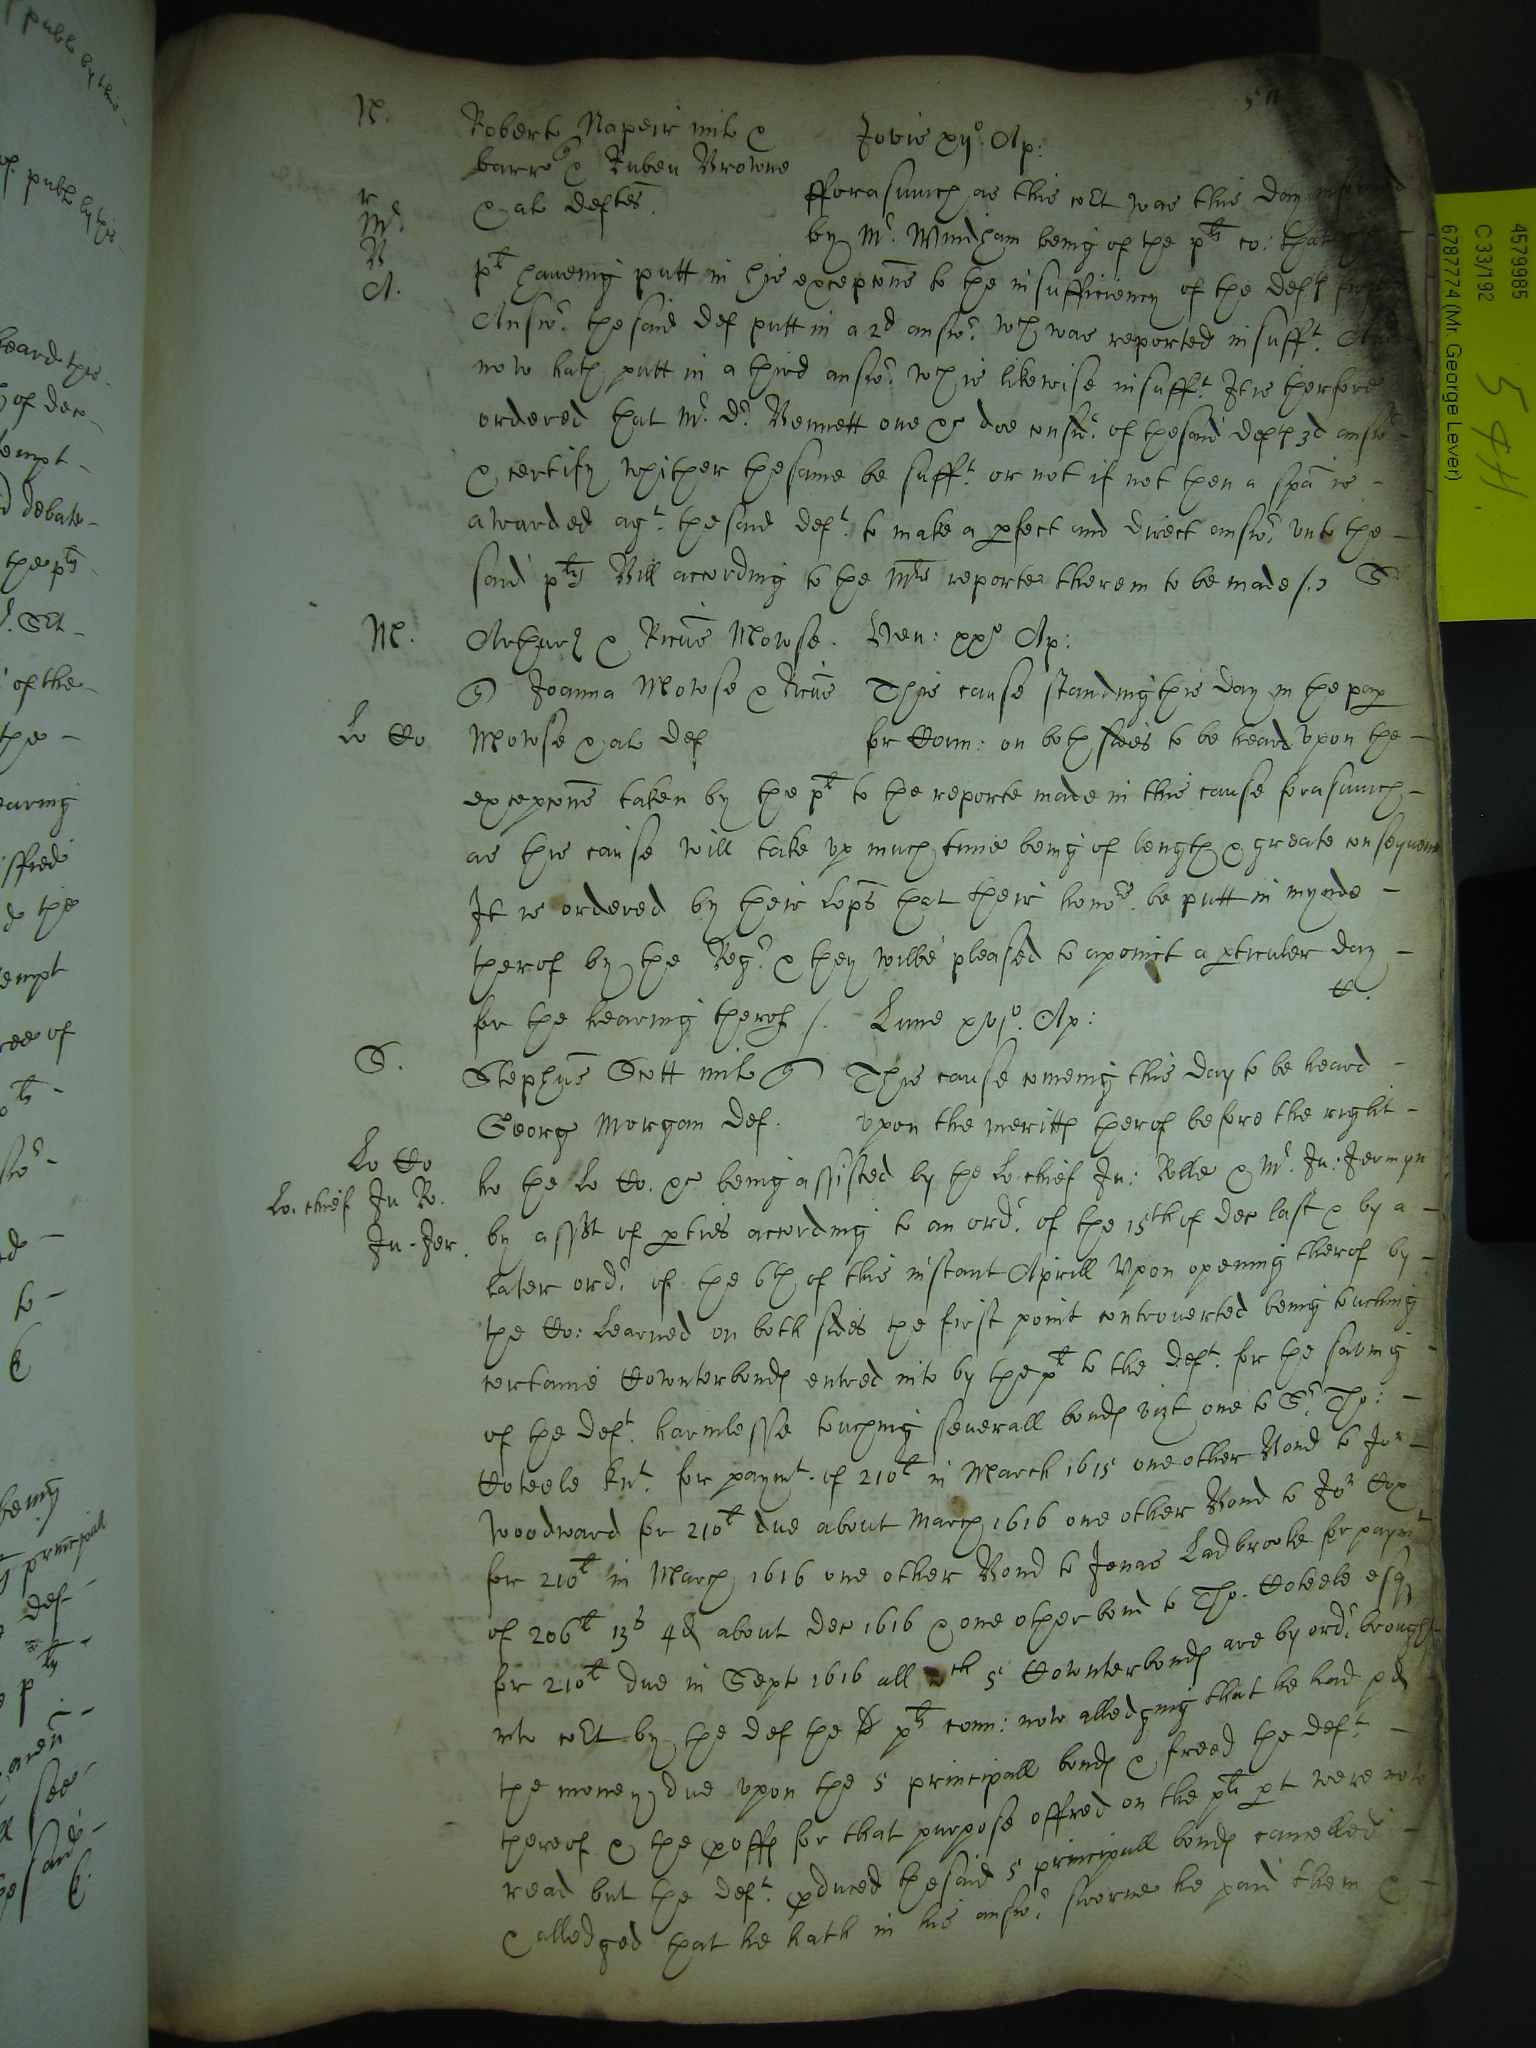 N. Roberto Napeir mil & Jovis xijo. Ap:
barrtt & Ruben Browne
r & al deftes. fforasmuch as this cort was this day
Mr. by Mr. Windham being of the pts co: that
B ptt haveing putt in his excepcons to the insufficiency of the defts
A. Answr. the said def putt in a 2d answr. wch was reported insufft.
now hath putt in a third answr. wch is likewise insufft. It is therfore
ordered that Mr. Dr. Bennett one &c doe consr. of the said defts 3d answr
& certify whither the same be sufft. or not if not then a spa is
awarded agt. the said deft. to make a pfect and direct answr. unto the
said pts Bill according to the Mrs reporte therein to be made /.
M. Arthur & Ricus Mowse. Ven: xxo Ap:
Joanna Mowse & Ricus This cause standing this day in the pap
Lo Co Mowse & al def for Coun: on both sides to be heard upon the
excepcons taken by the ptt to the reporte made in this cause forasmuch
as this cause will take up much time being of length & greate consequence
It is ordered by their Lopps that their honors. be putt in mynde
therof by the Regr. & they wilbe pleased to apoint a pticuler day
for the hearing therof /. Lune xvjo. Ap:
S. Stephus Scott mil This cause comeing this day to be heard
Georg Morgan def. upon the meritts therof before the right
Lo Co ho the Lo Co. &c being assisted by the Lo. chief Ju: Rolle & Mr. Ju: Jermyn
Lo. chief Ju Ro. by assent of pties according to an ordr. of the 15th of Dec last & by a
Ju-Jer. later ordr. of the 6th of this instant Aprill Upon opening therof by
the Co: Learned on both sides the first point controverted being touching
certaine Counterbonds entred into by the ptt to the deft. for the saving
of the deft. harmlesse touching severall bonds vizt one to Sr. Tho:
Coteele knt. for paymt. of 210l in March 1615 one other Bond to Jon
Woodward for 210l due about March 1616 one other Bond to Jon Cox
for 210l in March 1616 one other Bond to Jonas Ladbrooke for paymt
of 206l 13s 4d about Dec 1616 & one other bond to Tho. Coteele esq
for 210l due in Sept 1616 all wch 5 Counterbonds are by ordr. brought
into cort by the def the pts coun: now alledging that he had pd
the money due upon the 5 principall bonds & freed the deft.
thereof & the proffs for that purpose offred on the pts pt were now
read but the deft. pduced the said 5 principall bonds cancelled
& alledged that he hath in his answr. sworne he paid them &
4579985
C 33/192
6787774 (Mr. George Lever)